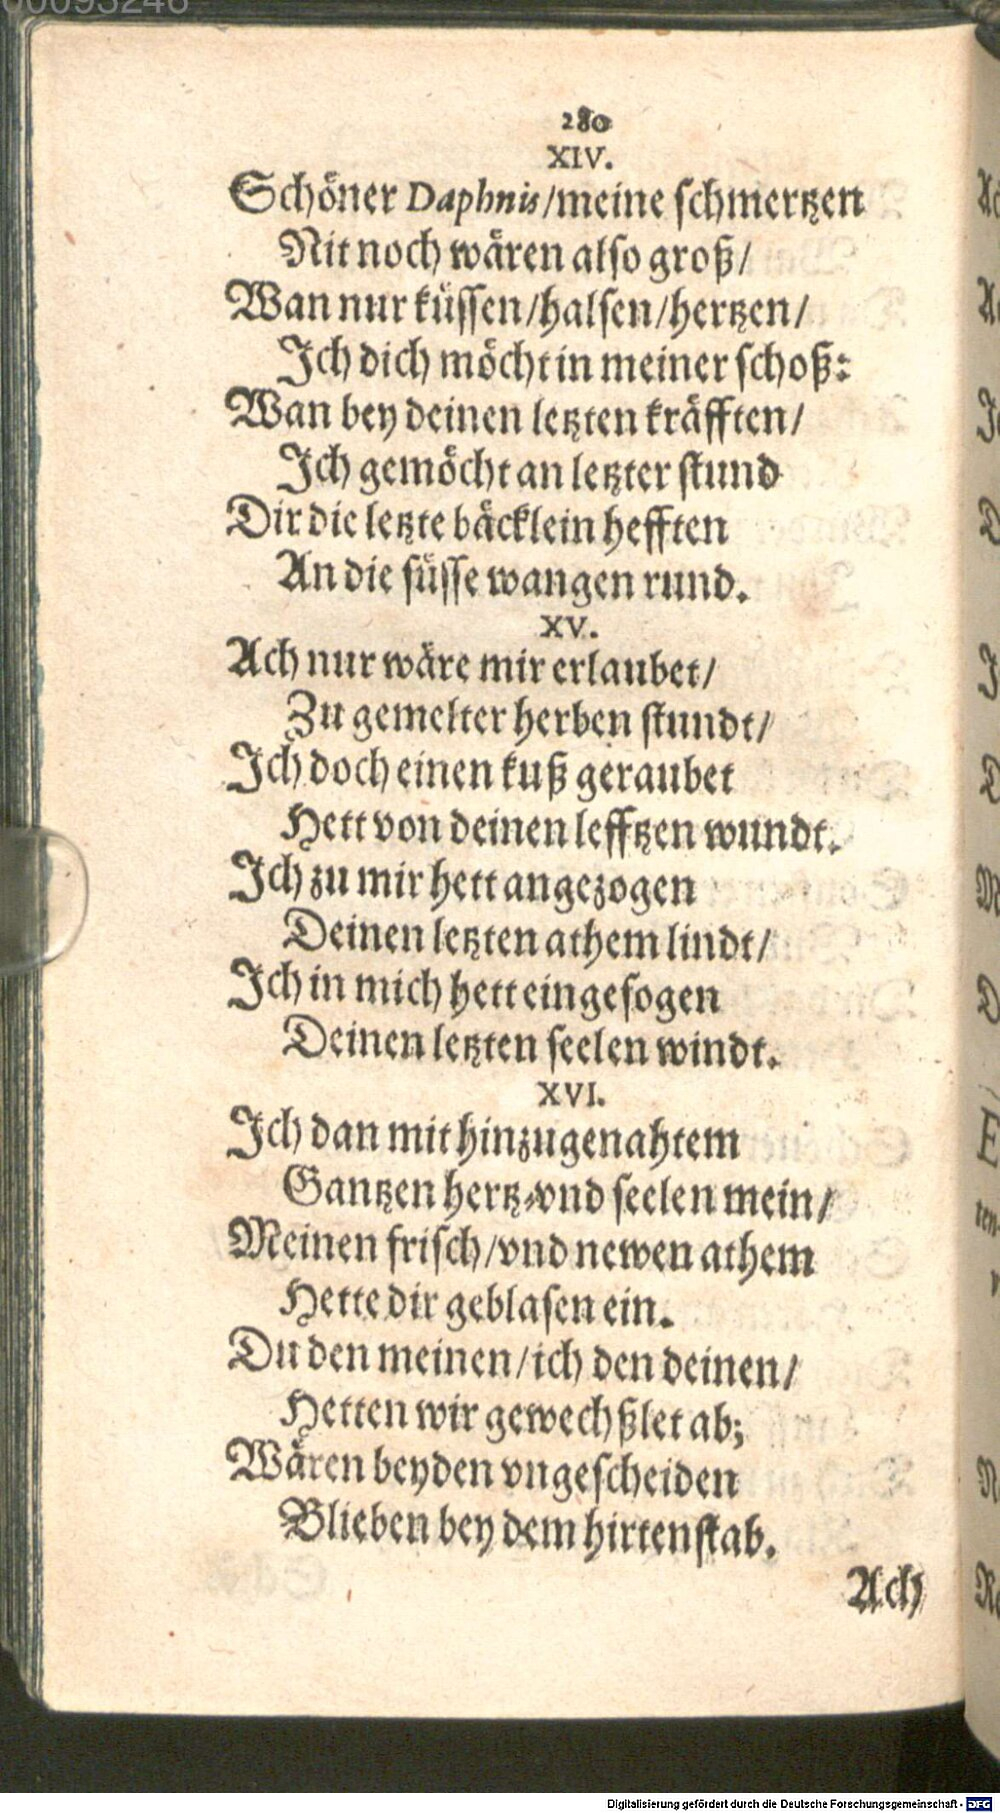 00095246
280
XIV.
Schöner Daphnis/meine schmertzen
Nit noch wären also groß/
Wan nur küssen/halsen/hertzen/
Ich dich möcht in meiner schoß:
Wan bey deinen letzten kräfften/
Ich gemöcht an letzter stund
Dir die letzte bäcklein hefften
An die süsse wangen rund.
XV.
Ach nur wäre mir erlaubet/
Zu gemelter herben stundt/
Ich doch einen kuß geraubet
Hett von deinen lefftzen wundt.
Ich zu mir hett angezogen
Deinen letzten athem lindt/
Ich in mich hett eingesogen
Deinen letzten seelen windt.
XVI.
Ich dan mit hinzugenahtem
Gantzen hertz-vnd seelen mein/
Meinen frisch/vnd newen athem
Hette dir geblasen ein.
Du den meinen/ich den deinen/
Hetten wir gewechßlet ab;
Wären beyden vngescheiden
Blieben bey dem hirtenstab.
Ach
Digitalisierung gefördert durch die Deutsche Forschungsgemeinschaft - DFG